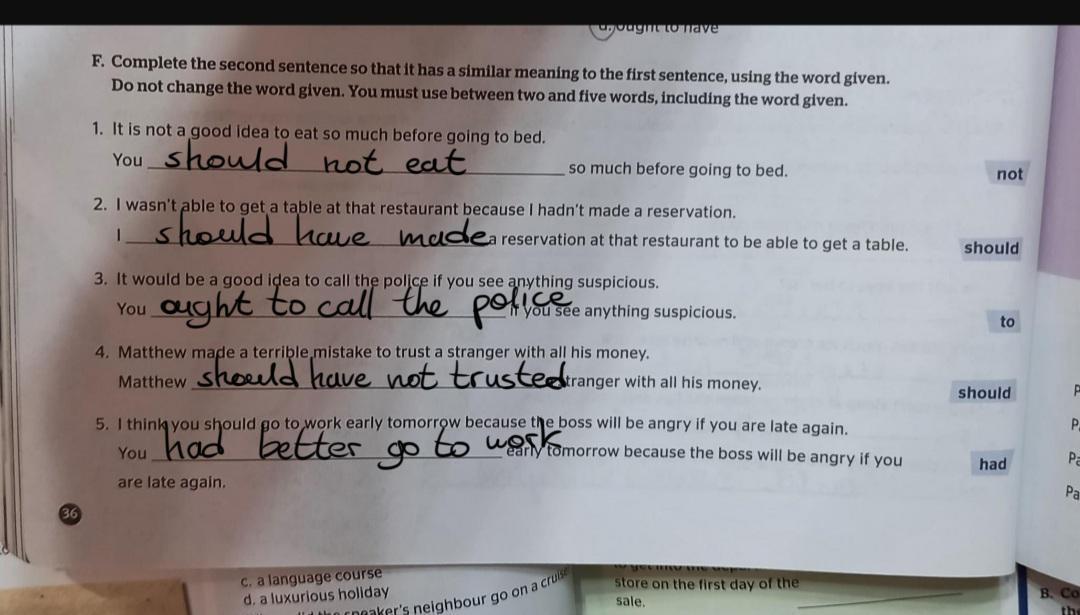 ought to have
F. Complete the second sentence so that it has a similar meaning to the first sentence, using the word given.
Do not change the word given. You must use between two and five words, including the word given.
1. It is not a good idea to eat so much before going to bed.
You should not eat so much before going to bed. not
2. I wasn't able to get a table at that restaurant because I hadn't made a reservation.
I should have made a reservation at that restaurant to be able to get a table. should
3. It would be a good idea to call the police if you see anything suspicious.
You ought to call the police if you see anything suspicious. to
4. Matthew made a terrible mistake to trust a stranger with all his money.
Matthew should have not trusted tranger with all his money. should
5. I think you should go to work early tomorrow because the boss will be angry if you are late again.
You had better go to work early tomorrow because the boss will be angry if you had
are late again.
36
c. a language course
d. a luxurious holiday
speaker's neighbour go on a cruise
store on the first day of the
sale.
B. Co